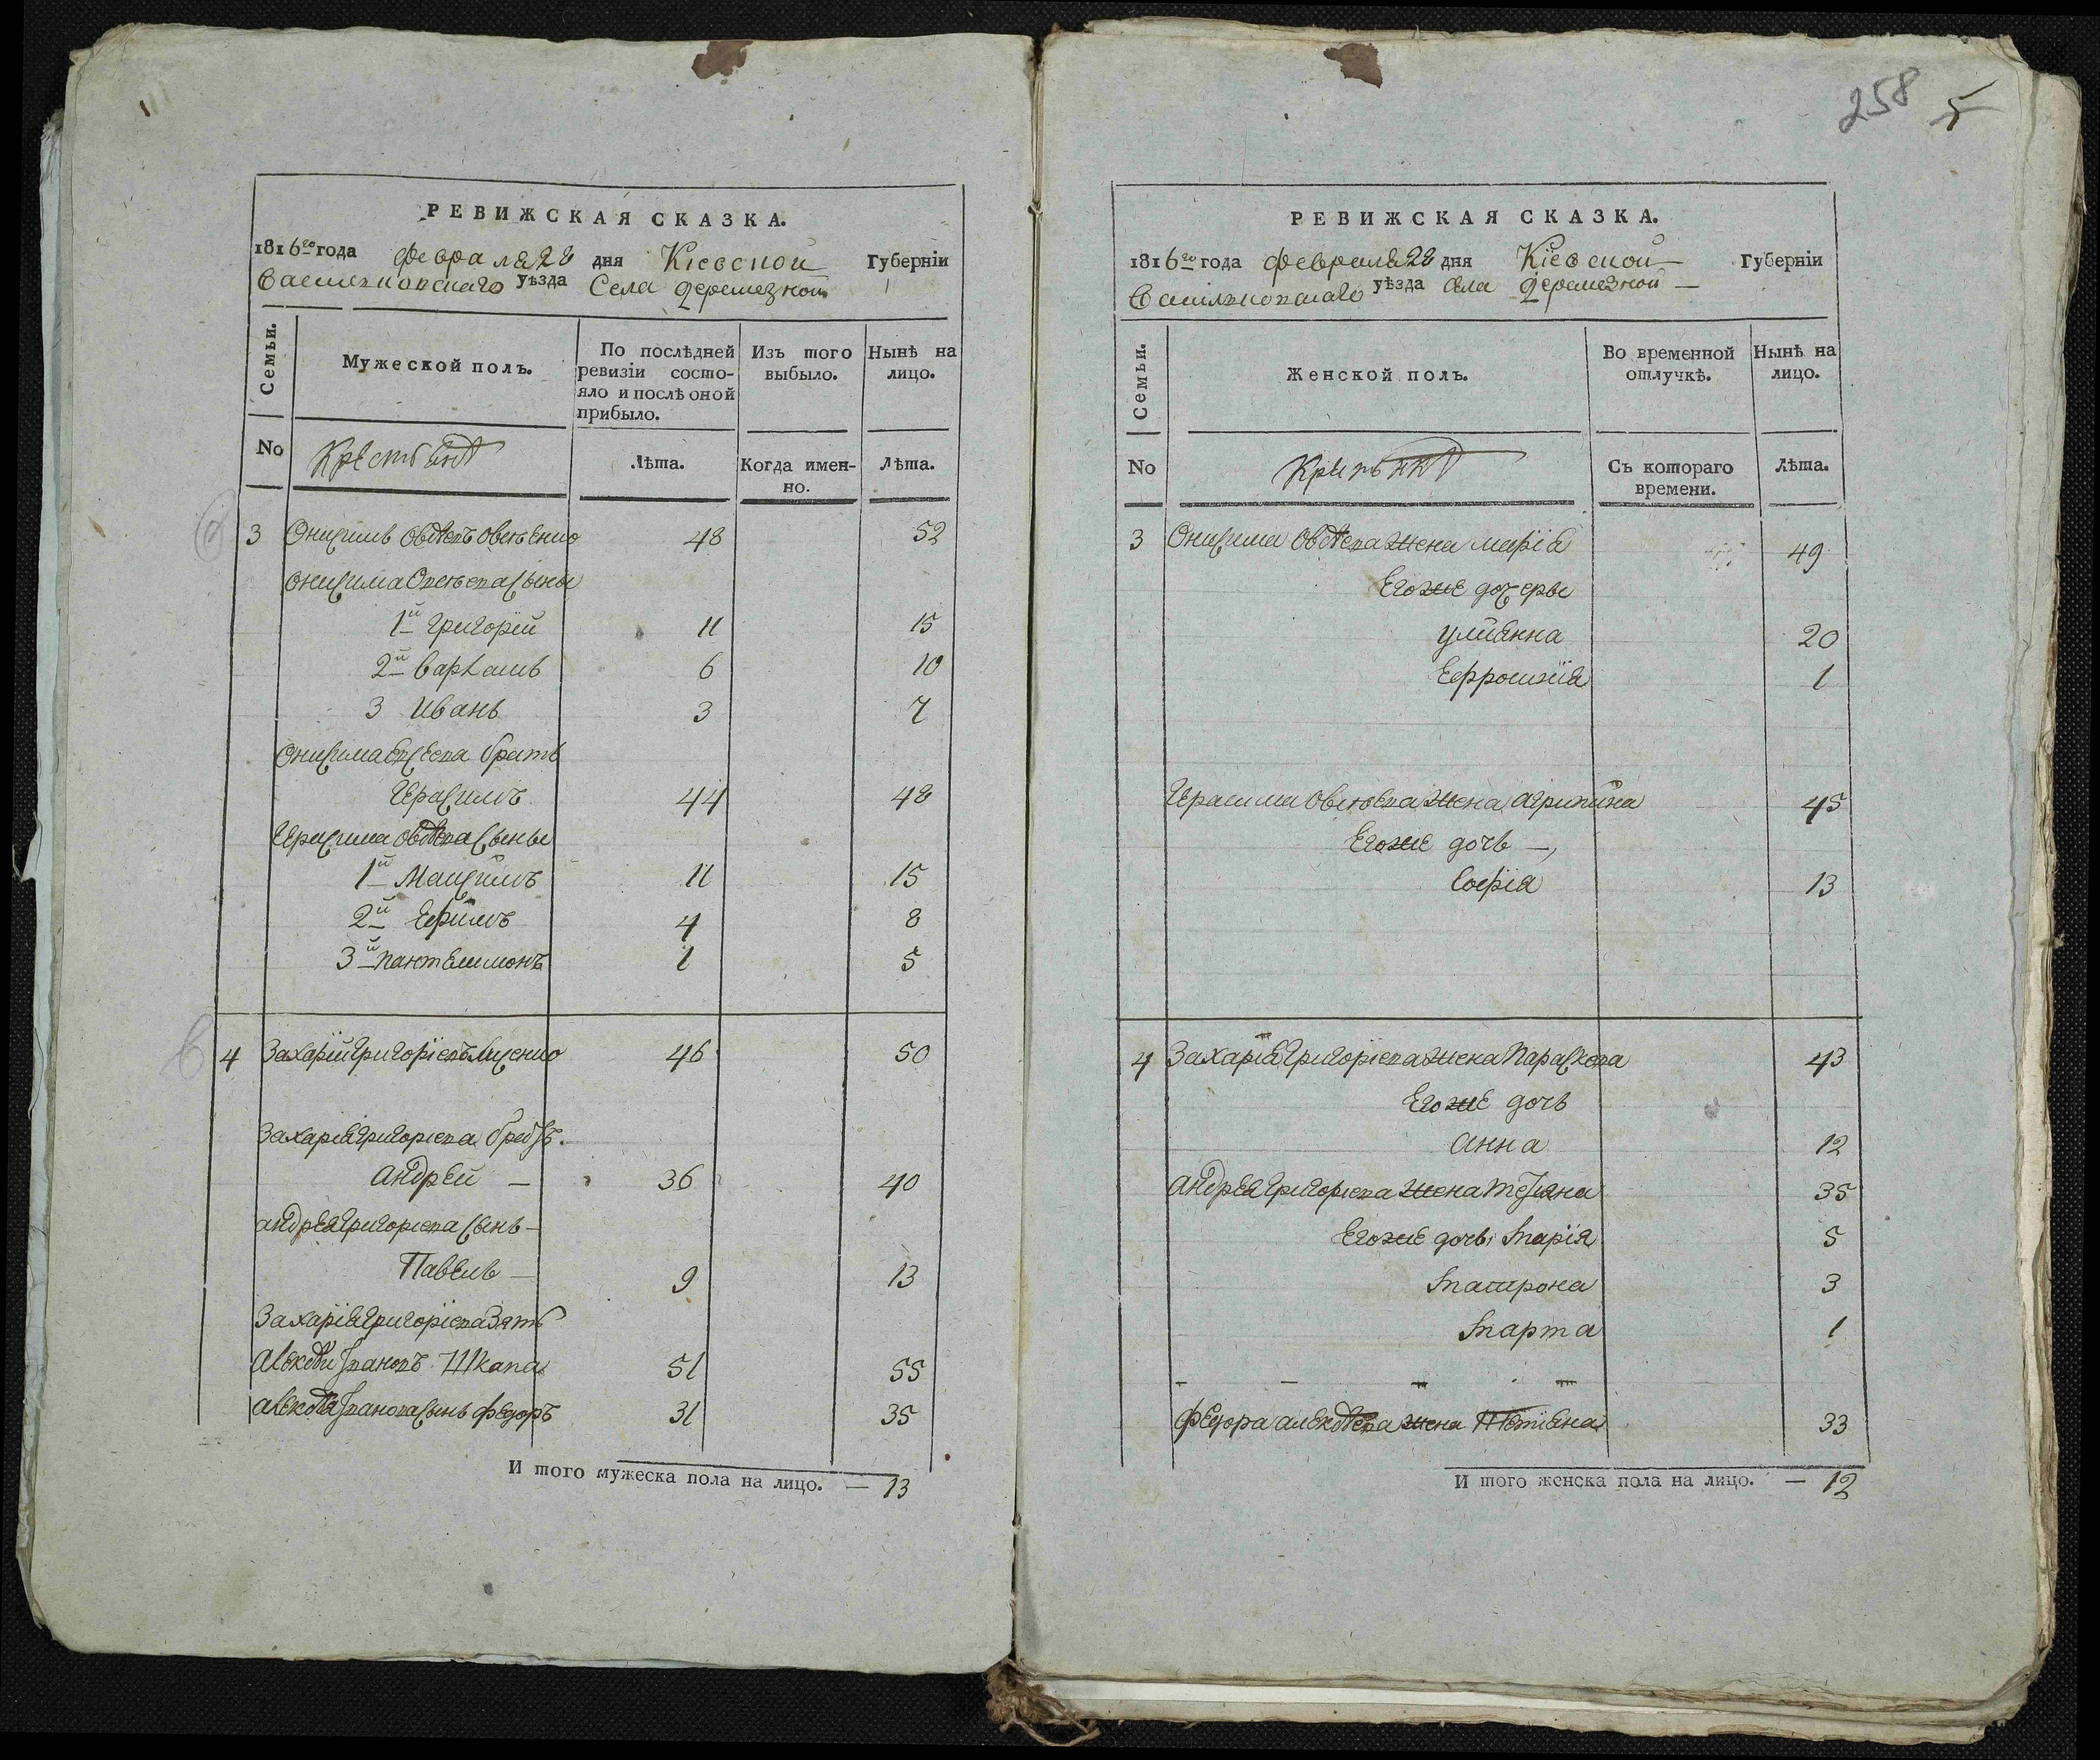 РЕВИЖСКАЯ СКАЗКА.
1816го года Февраля 28 дня Кіевской Губерніи
Васильковскаго уѣзда Села Деремезной
Семьи.
Мужеской полъ.
По послѣдней ревизіи состояло и послѣ оной прибыло.
Изъ того выбыло.
Нынѣ на лицо.
No
Крестьянъ
Лѣта.
Когда именно.
Лѣта.
3 Онисимъ 48 52
Онисима сыны
1й Григорій 11 15
2й Варѳамъ 6 10
3 Иванъ 3 7
Онисима братъ
Герасимъ 44 48
Герасима сыны
1й Максимъ 11 15
2й Ефимъ 4 8
3й Пантелимонъ 1 5
4 Захарій Григоріевъ Лисенко 46 50
Захарія Григоріева братъ.
Андрей — 36 40
Андрея Григоріева сынъ —
Павелъ — 9 13
Захарія Григоріева зять
Алексѣй Шкапа 51 55
Алексѣя сынъ Федоръ 31 35
И того мужеска пола на лицо. — 13
258 5
РЕВИЖСКАЯ СКАЗКА.
1816го года Февраля 28 дня Кіевской — Губерніи
Васильковскаго уѣзда Села Деремезной —
Семьи.
Женской полъ.
Во временной отлучкѣ.
Нынѣ на лицо.
No
Крестьянъ
Съ котораго времени.
Лѣта.
3 Онисима жена Марія 49
Его же дочеры
Улияна 20
Ефросинія 1
Герасима жена Агрипина 45
Его же дочь —,
Софія 13
4 Захарія Григоріева жена Параскева 43
Его же дочь
Анна 12
Андрея Григоріева жена Тетяна 35
Его же дочь Марія 5
Матрона 3
Марта 1
Федора Алексѣева жена Тетіяна 33
И того женска пола на лицо. — 12